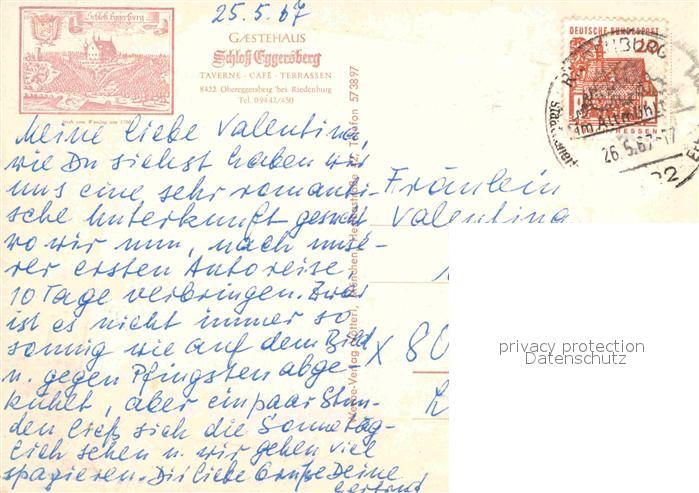 25.5.67
Schloß Eggersberg
GÆSTEHAUS
Schloß Eggersberg
TAVERNE · CAFÉ · TERRASSEN
8422 Obereggersberg bei Riedenburg
Tel. 09442/450
DEUTSCHE BUNDESPOST
HESSEN
im Altmühlt
26.5.67-17
Meine liebe Valentina,
wie Du siehst haben wir
uns eine sehr romanti-
sche Unterkunft gesucht
wo wir nun, nach unse-
rer ersten Autoreise
10 Tage verbringen. Zwar
ist es nicht immer so
sonnig wie auf dem Bild
u. gegen Pfingsten abge-
kühlt, aber ein paar Stun-
den ließ sich die Sonne täg-
lich sehen u. wir gehen viel
spazieren. Dir liebe Grüße Deine
Gertrud
Fräulein
Valentina
X 80
Telefon 573897
privacy protection
Datenschutz